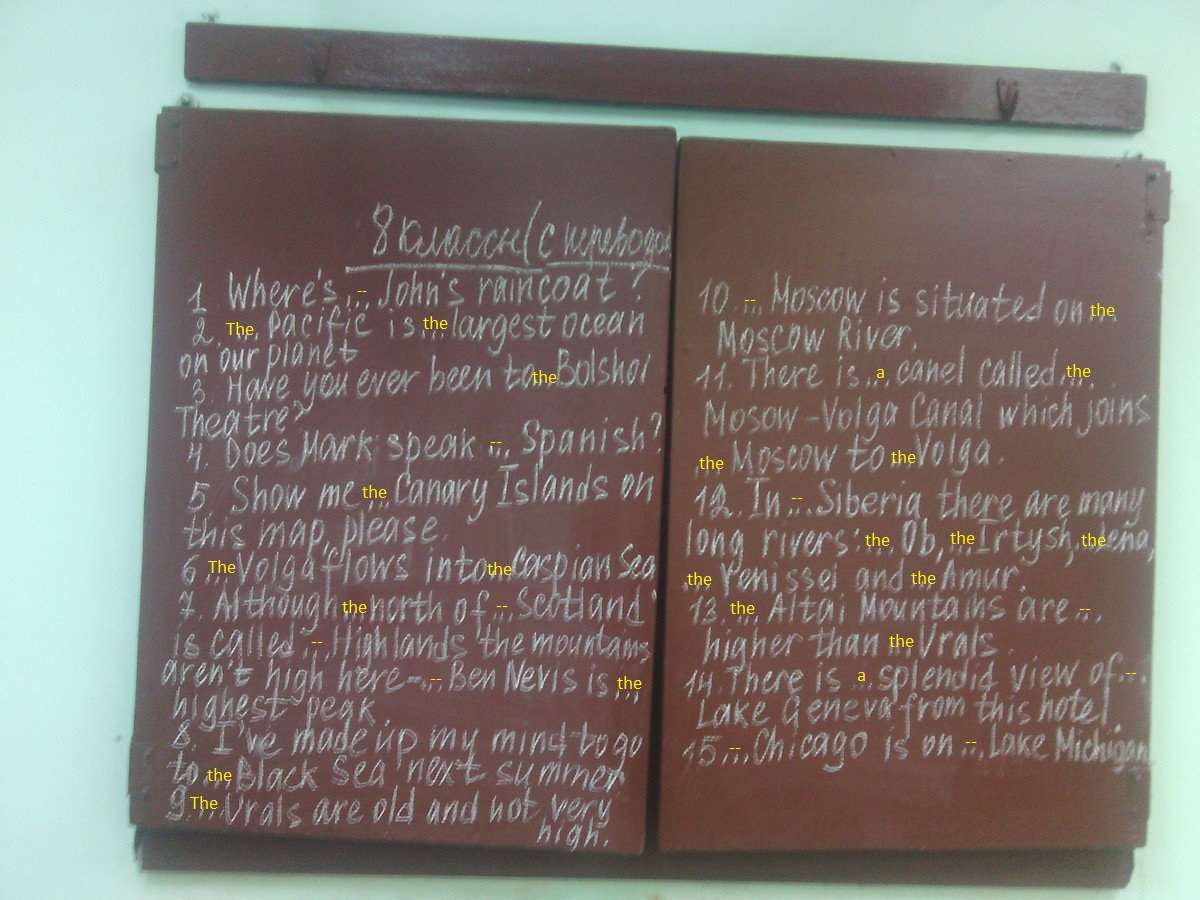 8 классы (с переводом
1 Where's ... -- John's raincoat ?
2. The... Pacific is the... largest ocean
on our planet
3. Have you ever been to the... Bolshoi
Theatre?
4. Does Mark speak --... Spanish?
5. Show me the... Canary Islands on
this map, please.
6 The... Volga flows into the... Caspian Sea
7. Although the... north of --... Scotland
is called --... Highlands the mountains
aren't high here- --... Ben Nevis is the...
highest peak.
8. I've made up my mind to go
to the... Black Sea next summer
9. The... Urals are old and not very
high.
10 --... Moscow is situated on the...
Moscow River.
11. There is a... canel called the...
Mosow-Volga Canal which joins
the... Moscow to the... Volga.
12. In --... Siberia there are many
long rivers: the... Ob, the... Irtysh, the ena,
the... Yenissei and the... Amur.
13. the... Altai Mountains are --...
higher than the... Urals.
14. There is a... splendid view of --...
Lake Geneva from this hotel.
15 --... Chicago is on --... Lake Michigan